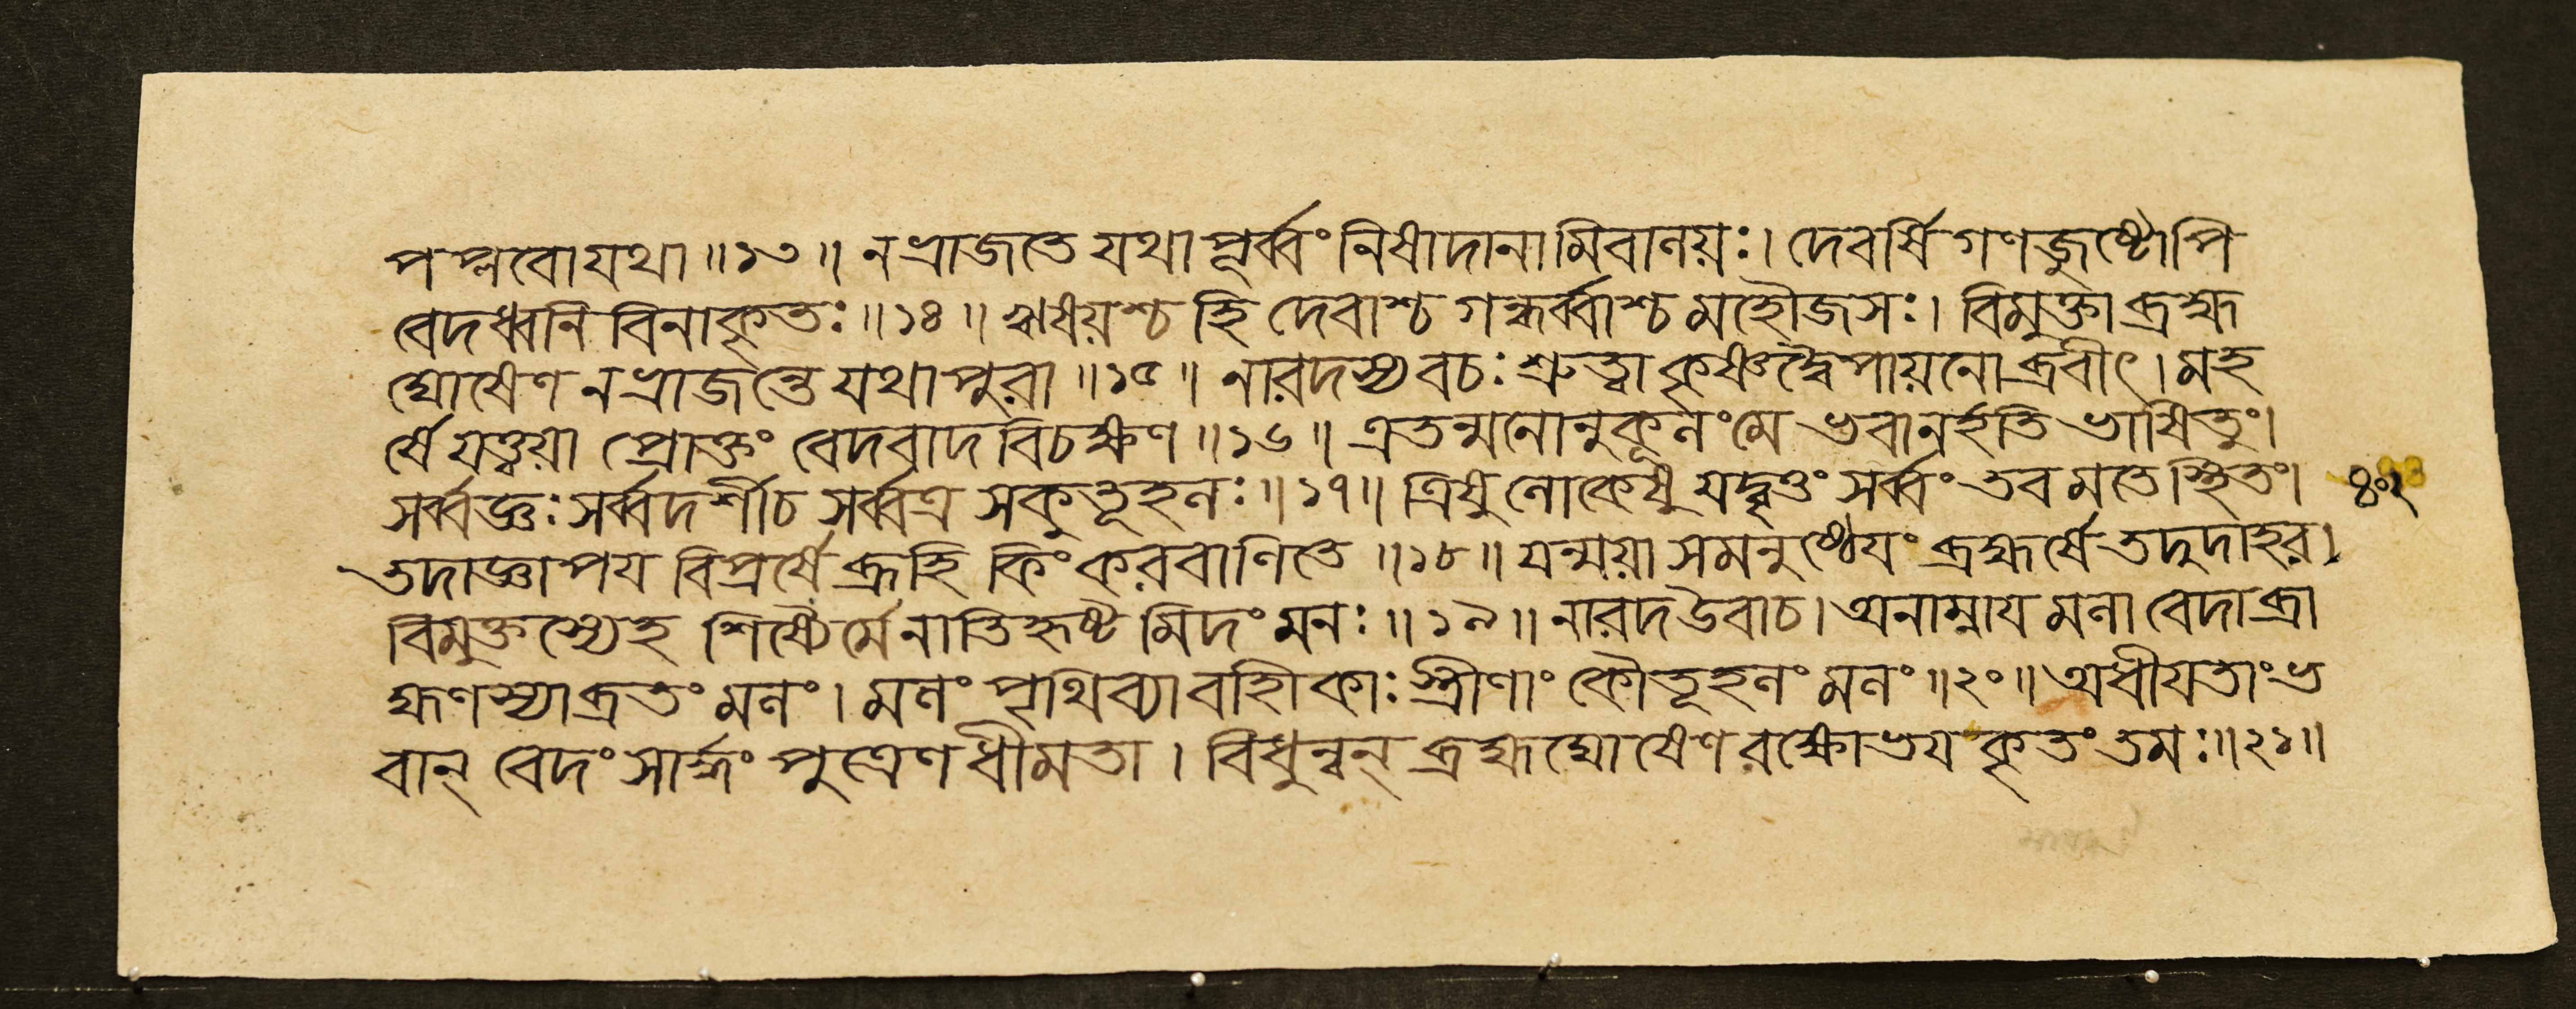 পপ্লবো যথা ॥১৩॥ ন ভ্রাজতে যথাপূর্ব্বং নিষাদানামিবালয়ঃ। দেবর্ষিগণজুষ্টোপি
বেদধ্বনি বিনাকৃতঃ ॥১৪॥ ঋষয়শ্চ হি দেবাশ্চ গন্ধর্ব্বাশ্চ মহৌজসঃ। বিমুক্তা ব্রহ্ম
ঘোষেণ ন ভ্রাজন্তে যথাপুরা ॥১৫॥ নারদস্য বচঃ শ্রুত্বা কৃষ্ণদ্বৈপায়নোব্রবীৎ। মহ
র্ষে যত্ত্বয়া প্রোক্তং বেদবাদবিচক্ষণ ॥১৬॥ এতন্মনোনুকূলং মে ভবানর্হতি ভাষিতুং।
সর্ব্বজ্ঞঃ সর্ব্বদর্শীচ সর্ব্বত্র সকুতূহলঃ ॥১৭॥ ত্রিষু লোকেষু যদ্বৃত্তং সর্ব্বং তব মতে স্থিতং।
তদাজ্ঞাপয বিপ্রর্ষে ব্রূহি কিং করবাণিতে ॥১৮॥ যন্ময়া সমনুষ্ঠেযং ব্রহ্মর্ষে তদুদাহর।
বিমুক্তস্যেহ শিষ্যৈর্মে নাতিহৃষ্টমিদং মনঃ ॥১৯॥ নারদ উবাচ। অনাম্নাযমলা বেদা ব্রা
হ্মণস্যাব্রতং মলং। মলং পৃথিব্যা বাহীকাঃ স্ত্রীণাং কৌতূহলং মলং ॥২০॥ অধীযতাং ভ
বান্ বেদং সার্দ্ধং পুত্রেণ ধীমতা। বিধুন্বন্ ব্রহ্মঘোষেণ রক্ষোভযকৃতং তমঃ ॥২১॥